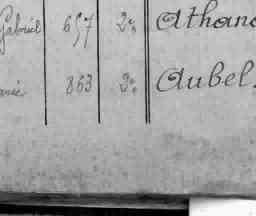 Gabriel 657 2° Athana
863 3° Aubel.